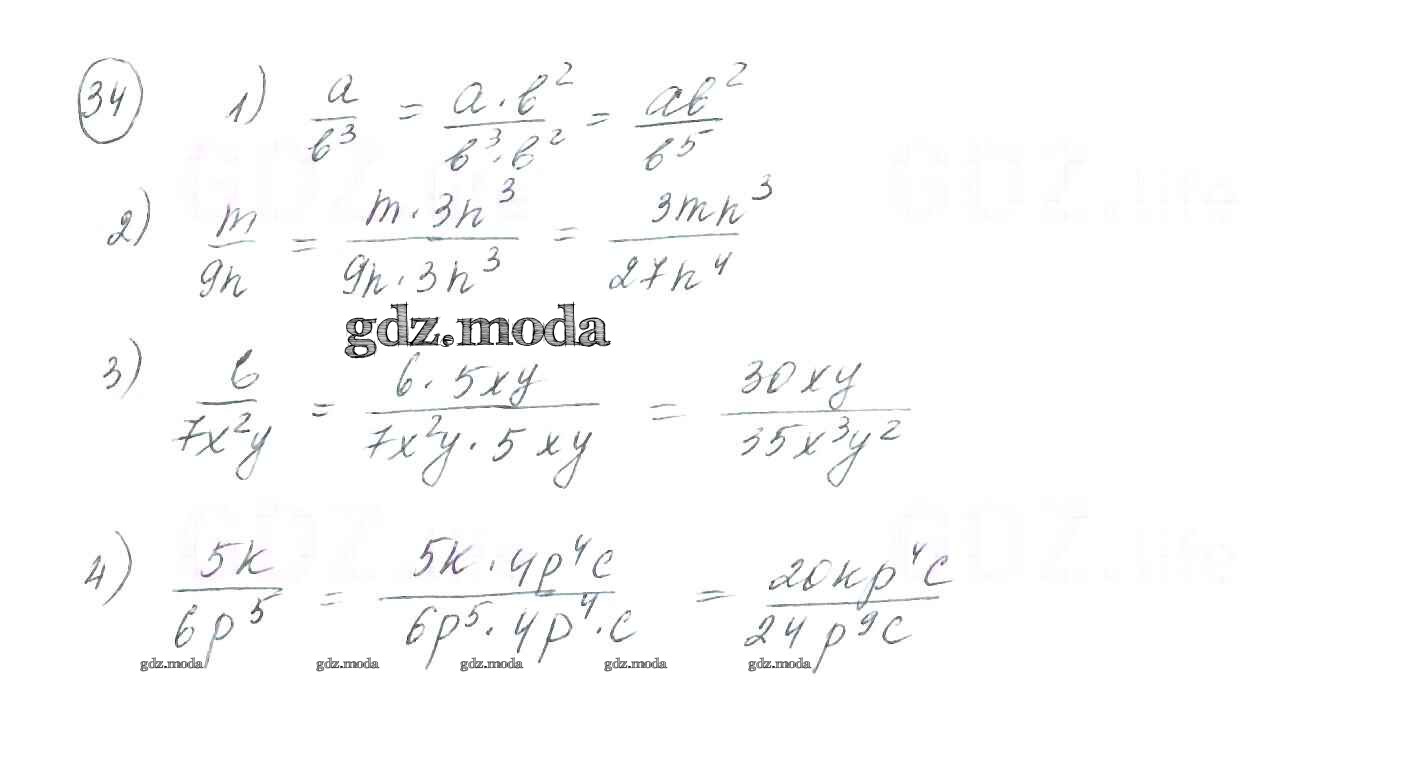 34 1) a/b³ = a·b²/b³·b² = ab²/b⁵
2) m/9n = m·3n³/9n·3n³ = 3mn³/27n⁴
gdz.moda
3) 6/7x²y = 6·5xy/7x²y·5xy = 30xy/35x³y²
4) 5k/6p⁵ = 5k·4p⁴c/6p⁵·4p⁴·c = 20kp⁴c/24p⁹c
gdz.moda gdz.moda gdz.moda gdz.moda gdz.moda
GDZ.life GDZ.life
GDZ.life GDZ.life